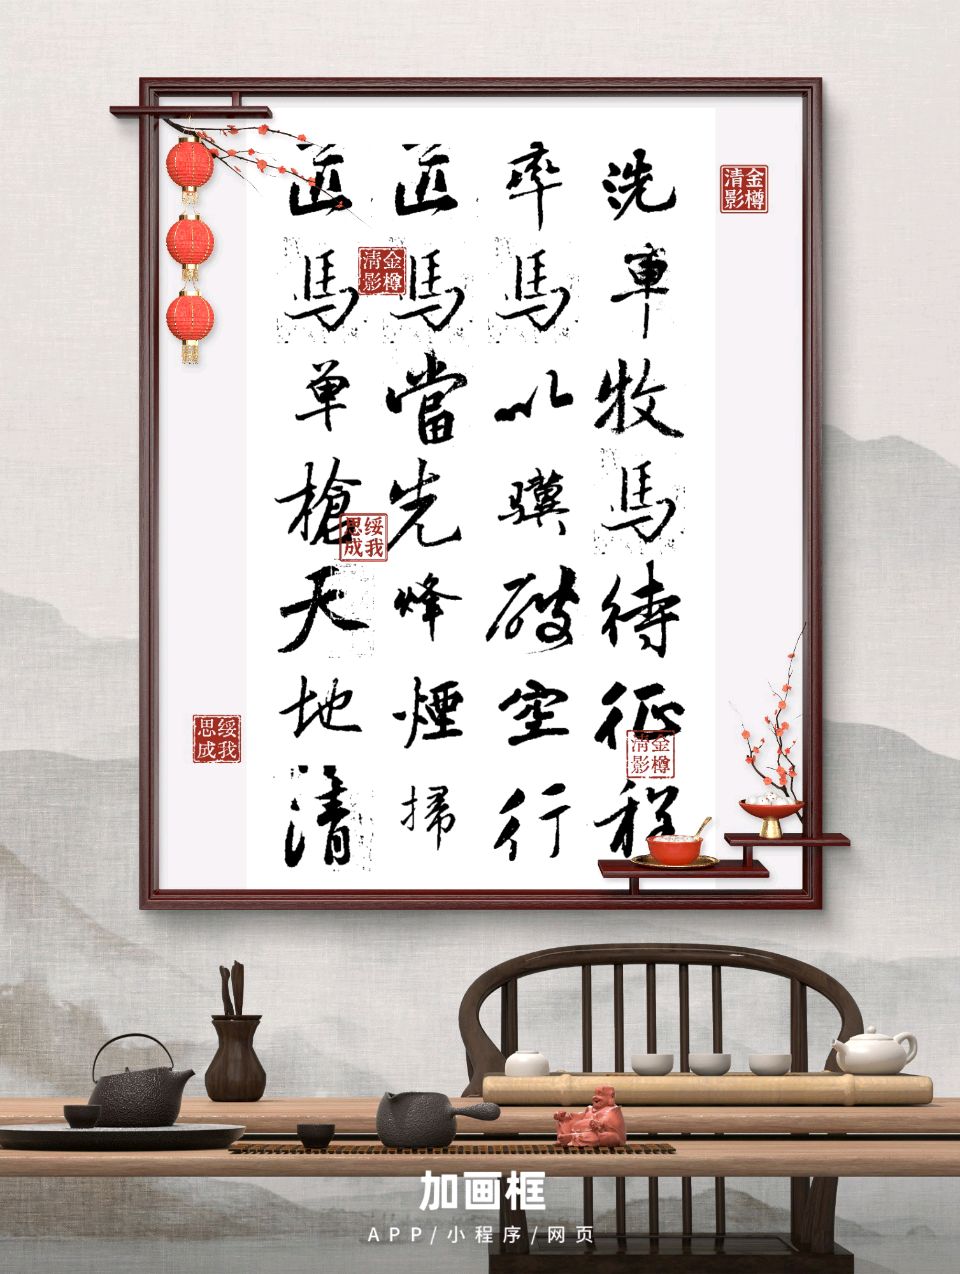 洗車牧馬待征程
率馬以骥破空行
匹馬當先烽煙掃
匹馬单槍天地清
金樽清影
金樽清影
金樽清影
绥我思成
绥我思成
加画框
APP/小程序/网页